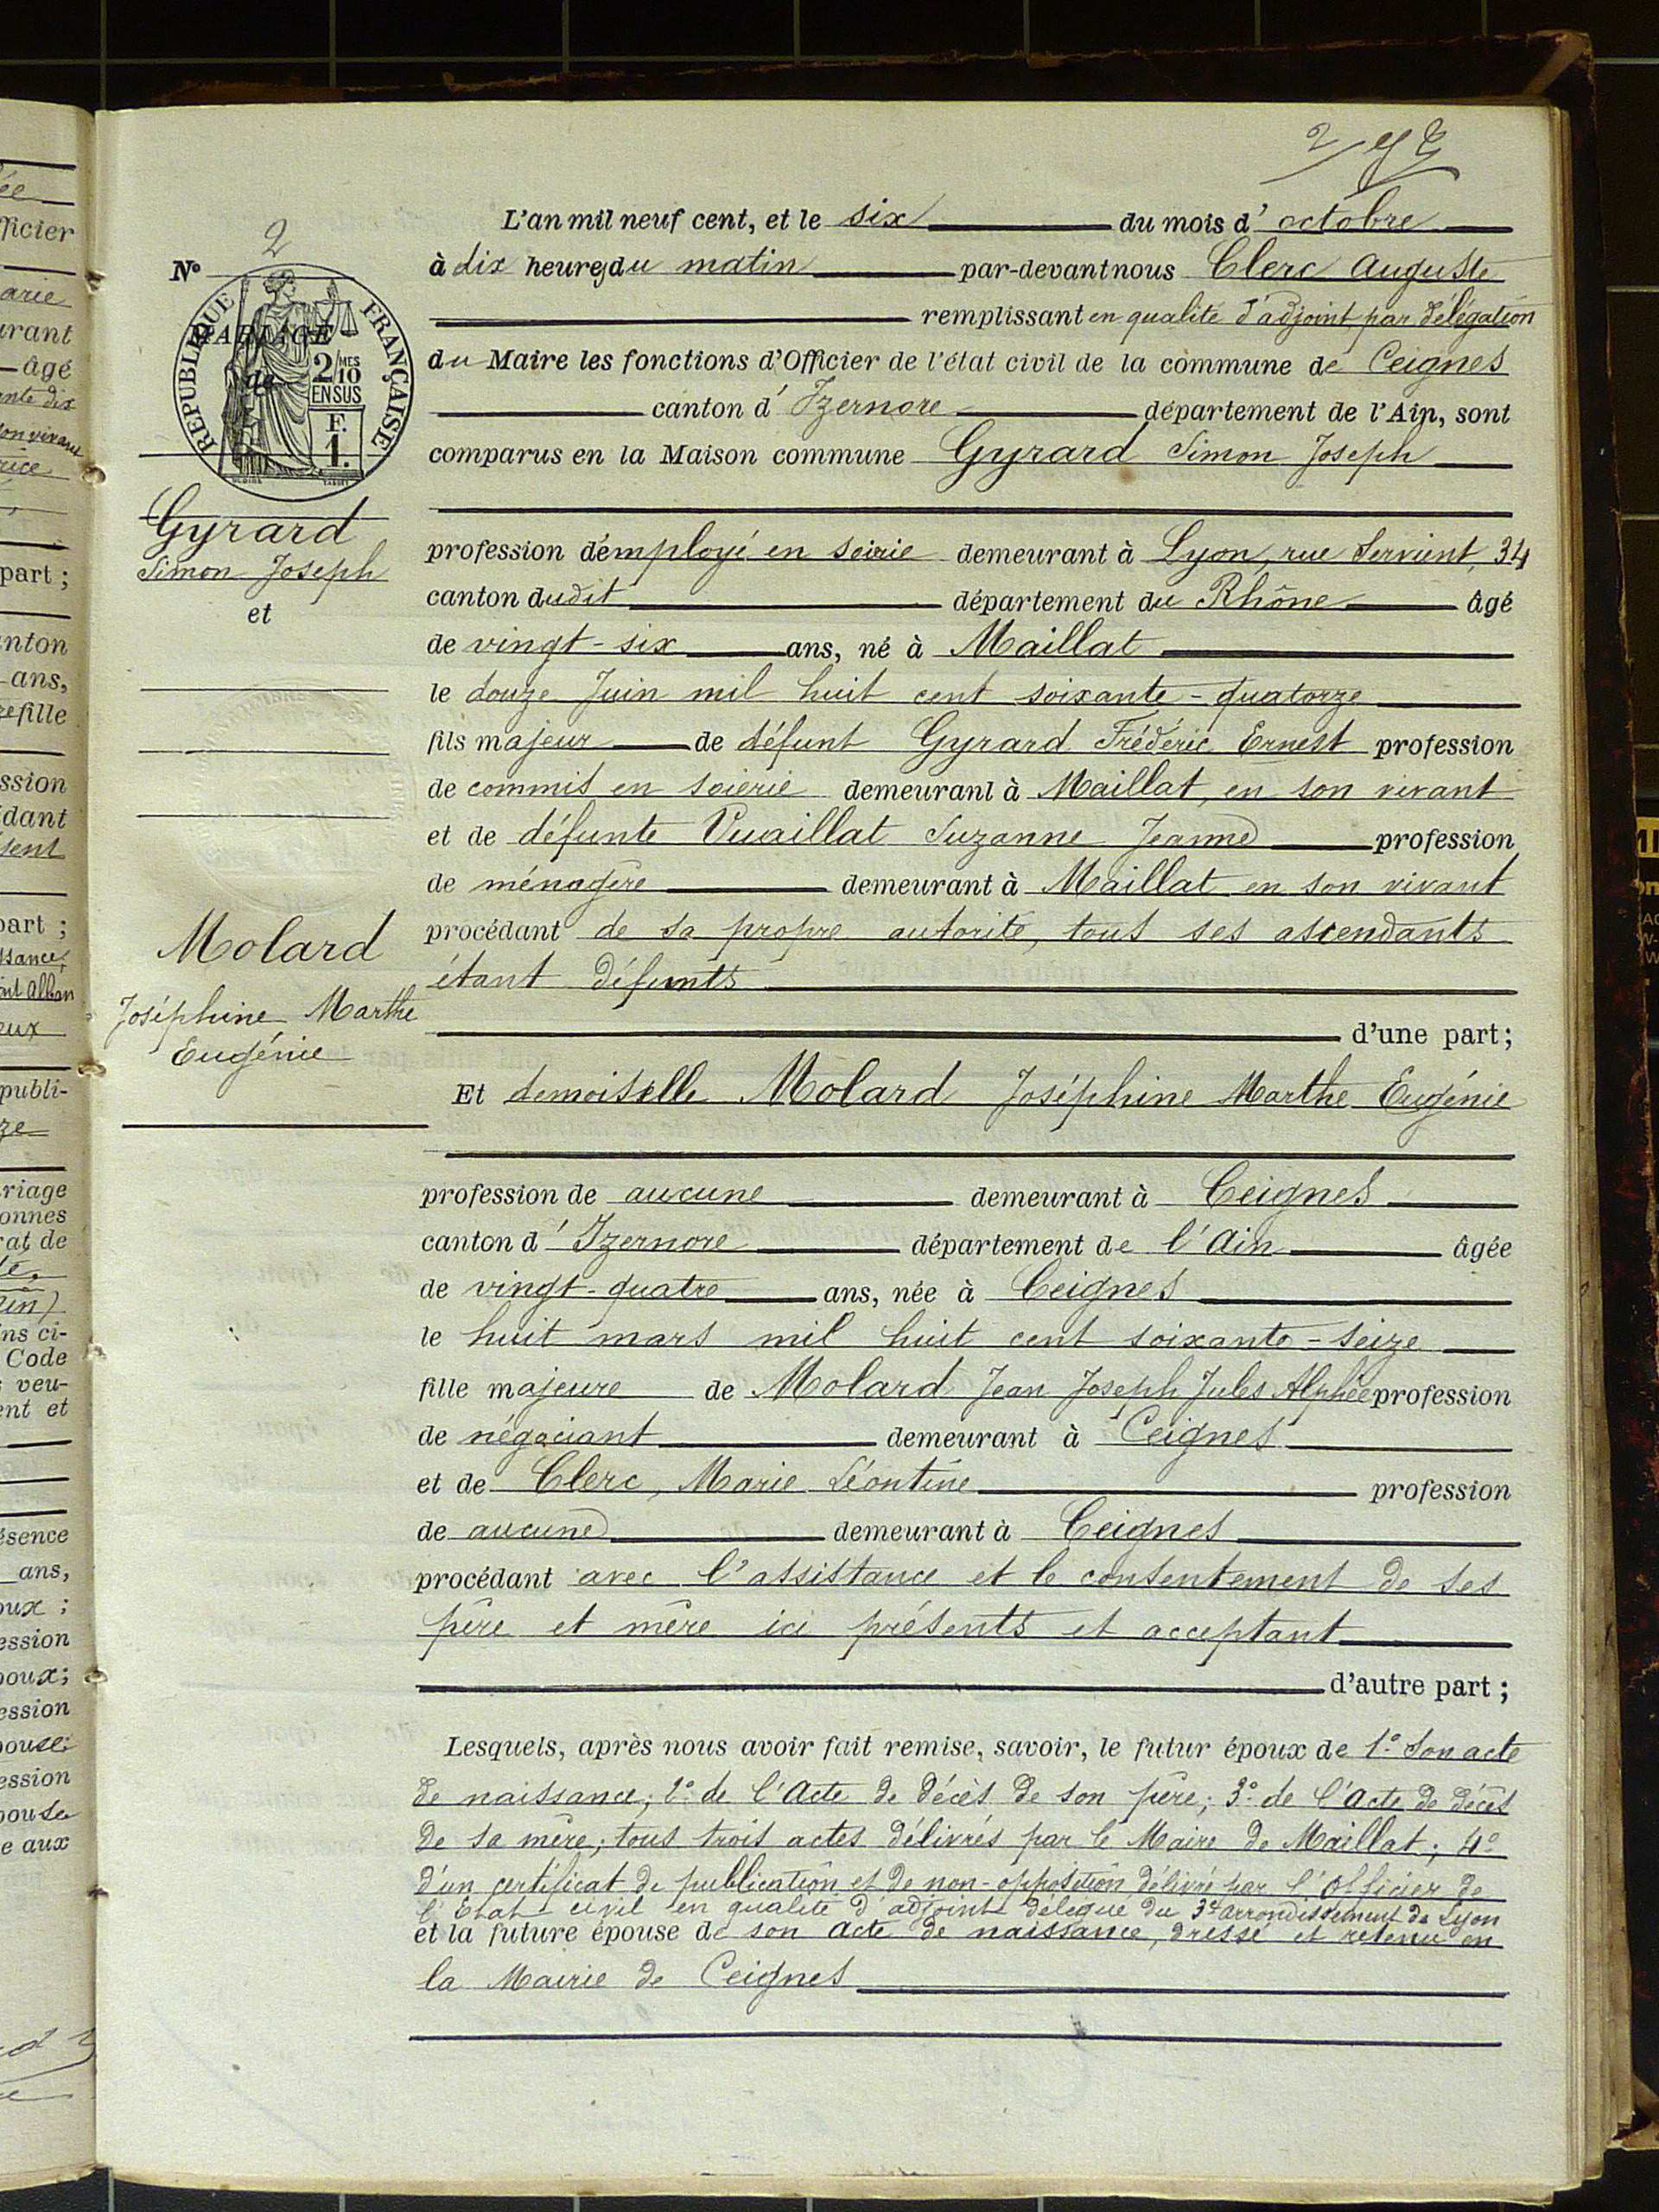 2
L'an mil neuf cent, et le six du mois d'octobre
à dix heures du matin par-devant nous Clerc Auguste
remplissant en qualité d'adjoint par délégation
du Maire les fonctions d'Officier de l'état civil de la commune de Ceignes
canton d'Izernore département de l'Ain, sont
comparus en la Maison commune Gyrard Simon Joseph
profession d'employé en soirie demeurant à Lyon, rue Servient, 34
canton dudit département du Rhône âgé
de vingt-six ans, né à Maillat
le douze Juin mil huit cent soixante-quatorze
fils majeur de défunt Gyrard Frédéric Ernest profession
de commis en soierie demeurant à Maillat, en son vivant
et de défunte Vuaillat Suzanne Jeanne profession
de ménagère demeurant à Maillat en son vivant
procédant de sa propre autorité, tous ses ascendants
étant défunts
d'une part;
Et demoiselle Molard Joséphine Marthe Eugénie
profession de aucune demeurant à Ceignes
canton d'Izernore département de l'Ain âgée
de vingt-quatre ans, née à Ceignes
le huit mars mil huit cent soixante-seize
fille majeure de Molard Jean Joseph Jules Alphée profession
de négociant demeurant à Ceignes
et de Clerc, Marie Léontine profession
de aucune demeurant à Ceignes
procédant avec l'assistance et le consentement de ses
père et mère ici présents et acceptant
d'autre part;
Lesquels, après nous avoir fait remise, savoir, le futur époux de 1° Son acte
de naissance; 2° de l'Acte de décès de son père; 3° de l'Acte de décès
de sa mère; tous trois actes délivrés par le Maire de Maillat; 4°
d'un certificat de publication et de non-opposition délivré par l'Officier de
l'Etat civil en qualité d'adjoint délégué du 3e arrondissement de Lyon
et la future épouse de son acte de naissance, dressé et retenu en
la Mairie de Ceignes
N° 2
MARIAGE
de
REPUBLIQUE FRANÇAISE
2/10 MES
EN SUS
F.
1.
Gyrard
Simon Joseph
et
Molard
Joséphine Marthe
Eugénie
ée
fficier
arie
urant
âgé
ante dix
son vivant
rice
part ;
anton
ans,
fille
ssion
dant
sent
part ;
ssance,
eux
publi-
ze
riage
onnes
rat de
té.
Ain)
ns ci-
Code
veu-
ent et
ésence
ans,
oux ;
ession
poux;
ession
ouse;
ession
pouse
e aux